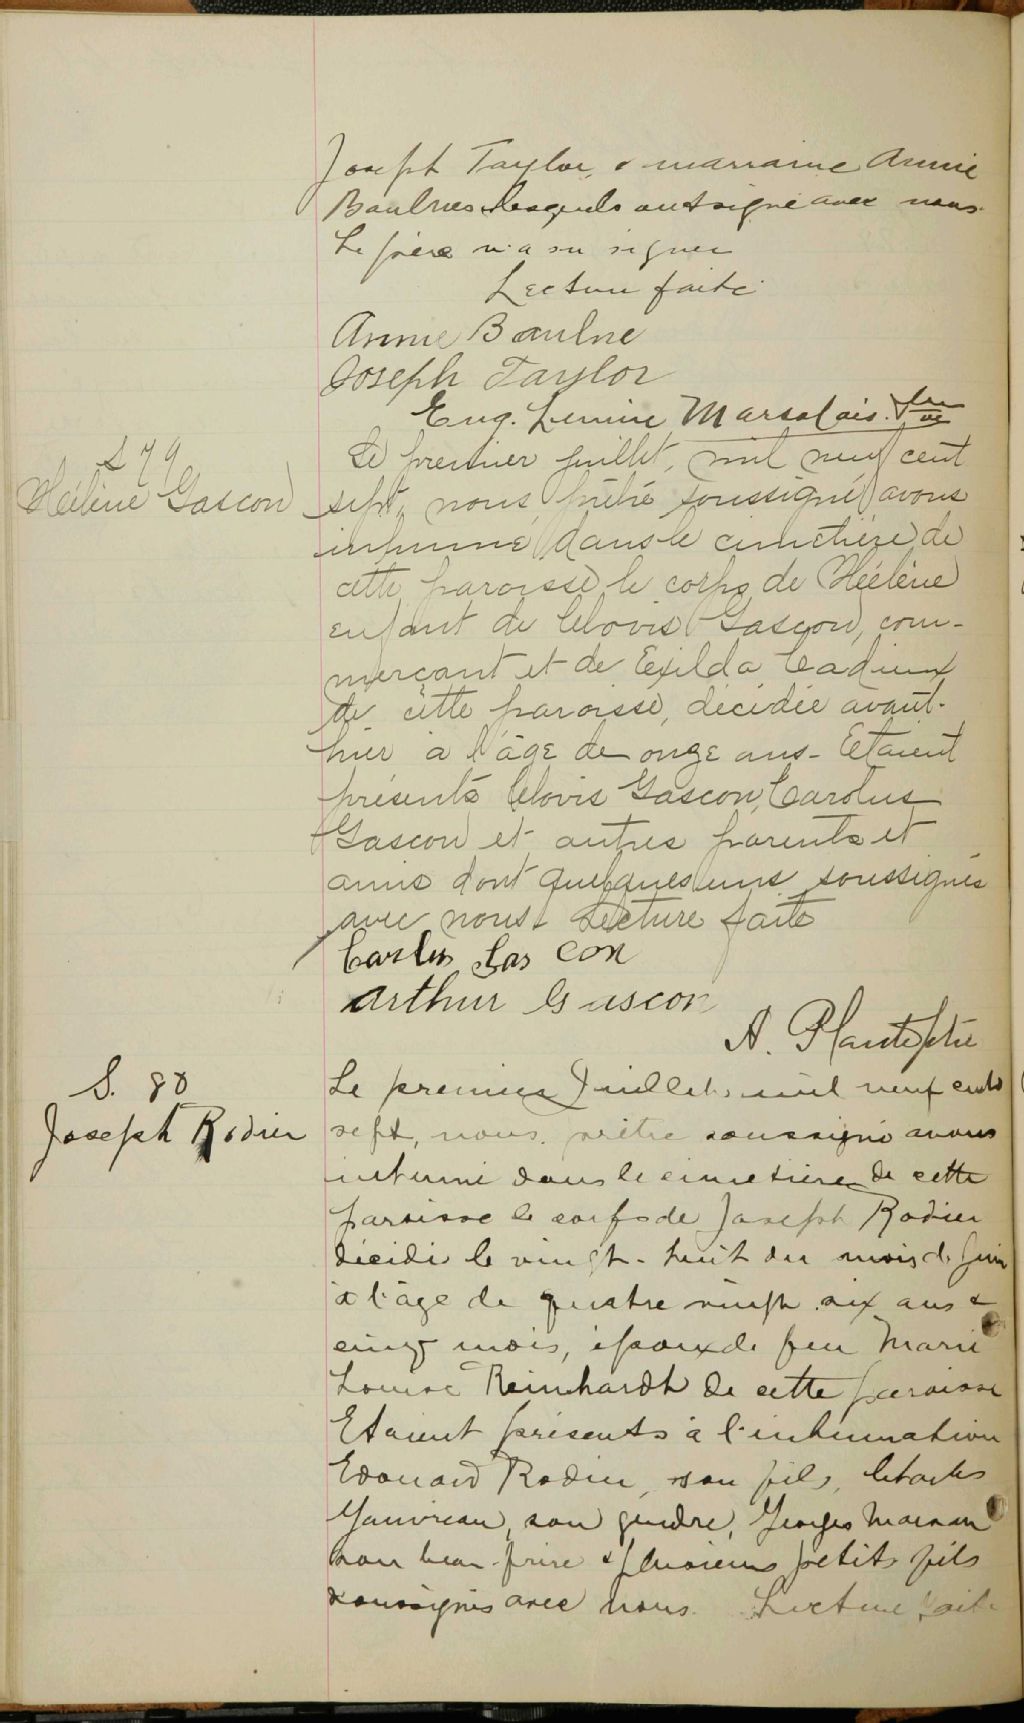 Joseph Taylor, & marraine Annie
Baulnes lesquels ont signé avec nous.
Le père n'a su signer
Lecture faite
Annie Baulne
Joseph Taylor
Eug. Lemire Marsolais. ptre
S 79
Hélène Gascon
Le premier juillet, mil neuf cent
sept, nous, prêtre soussigné avons
inhumé dans le cimetière de
cette paroisse le corps de Hélène
enfant de Clovis Gascon, com-
merçant et de Exilda Cadieux
de cette paroisse, décédée avant-
hier à l'âge de onze ans. Etaient
présents Clovis Gascon, Carolus
Gascon et autres parents et
amis dont quelques uns soussignés
avec nous. Lecture faite
Gascon
Arthur Gascon
A. Plante ptre
S. 80
Joseph Rodier
Le premier Juillet, mil neuf cent
sept, nous, prêtre soussigné avons
inhumé dans le cimetière de cette
paroisse le corps de Joseph Rodier
décédé le vingt-huit du mois de Juin
à l'âge de quatre vingt six ans &
cinq mois, époux de feu Marie
Louise Reinhardt de cette paroisse
Etaient présents à l'inhumation
Edouard Rodier, son fils, Charles
Gauvreau, son gendre, Georges
son beau-frère & plusieurs petits fils
soussignés avec nous. Lecture faite